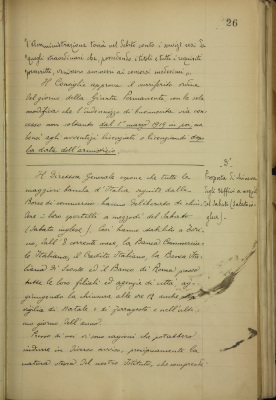 26
l'Amministrazione terrà nel debito conto i servizi resi da
quegli straordinari che, possedendo i titoli e tutti i requisiti
prescritti, venissero ammessi ai concorsi medesimi".
Il Consiglio approva il suriferito ordine
del giorno della Giunta Permanente con la sola
modifica che l'indennità di buonuscita sia con
cessa non soltanto dal 1° marzo 1919 in poi, ma
bensì agli avventizi licenziati o licenziandi dopo
la data dell'armistizio
3°
Proposta di chiusura
degli uffici a mezzodì
del Sabato (Sabato in
glese).
Il Direttore Generale espone che tutte le
maggiori banche d'Italia, seguite dalle
Borse di commercio hanno deliberato di chiu
dere i loro sportelli a mezzodì del Sabato
(Sabato inglese). Così hanno stabilito a Tori
no, dall' 8 corrente anno, la Banca Commercia
le Italiana, il Credito Italiano, la Banca Ita
liana di Sconto ed il Banco di Roma presso
tutte le loro filiali ed agenzie di città, ag
giungendo la chiusura alle ore 12 anche alla
vigilia di Natale e di ferragosto e nell'ulti
mo giorno dell'anno.
Presso di noi vi sono ragioni che potrebbero
indurre in diverso avviso, principalmente la
natura stessa del nostro Istituto, che comprende